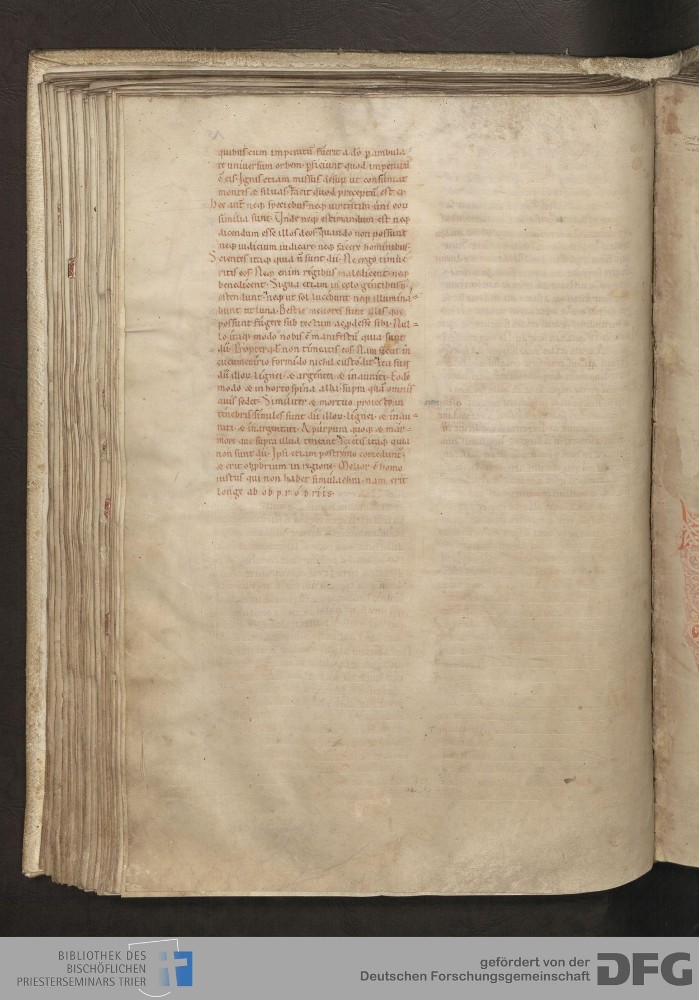 quibus cum imperatū fuerit a dō p̄ambula
re universum orbem. p̄ficiunt quod imperatū
ē eis. Ignis etiam missus desup ut consumat
montes & silvas. facit quod preceptū est ei.
Hec aut̄ neq; speciebus neq; virtutibs uni eoꝝ
similia sunt. Unde neq; estimandum est neq;
dicendum esse illos deos. quando non possunt
neq; iudicium iudicare. neq; facere hominibus.
Scientes itaq; quia n̄ sunt dii. Ne ergo timue
ritis eos. Neq; enim regibus maledicent. neq;
benedicent. Signa etiam in celo gentibus n̄
ostendunt. neq; ut sol lucebunt neq; illumina
bunt ut luna. Bestie meliores sunt illis que
possunt fugere sub tectum ac p̄desse sibi. Nul
lo itaq; modo nobis ē manifestū quia sunt
dii. Propter qd̄ non timeatis eos. Nam sicut in
cucumerario formido nichil custodit. ita sunt
dii illoꝝ lignei. & argentei & inaurati. Eodē
modo & in horto spina alba. supra quā omnis
avis sedet. Similiter & mortuo proiecto in
tenebris similes sunt dii illoꝝ. lignei. & inau
rati. & inargentati. A purpura quoq; & mar
more que supra illud tenent. scietis itaq; quia
non sunt dii. Ipsi etiam postremo comedunt̄.
& erit obp̄brium in regione. Melior ē homo
iustus qui non habet simulachra. nam erit
longe ab obprobriis.
BIBLIOTHEK DES
BISCHÖFLICHEN
PRIESTERSEMINARS TRIER
gefördert von der
Deutschen Forschungsgemeinschaft
DFG